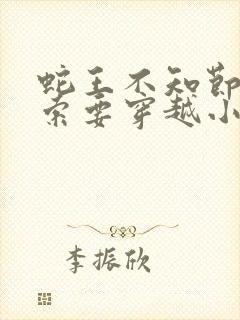 蛇王不知节
索要穿越小
李振欣